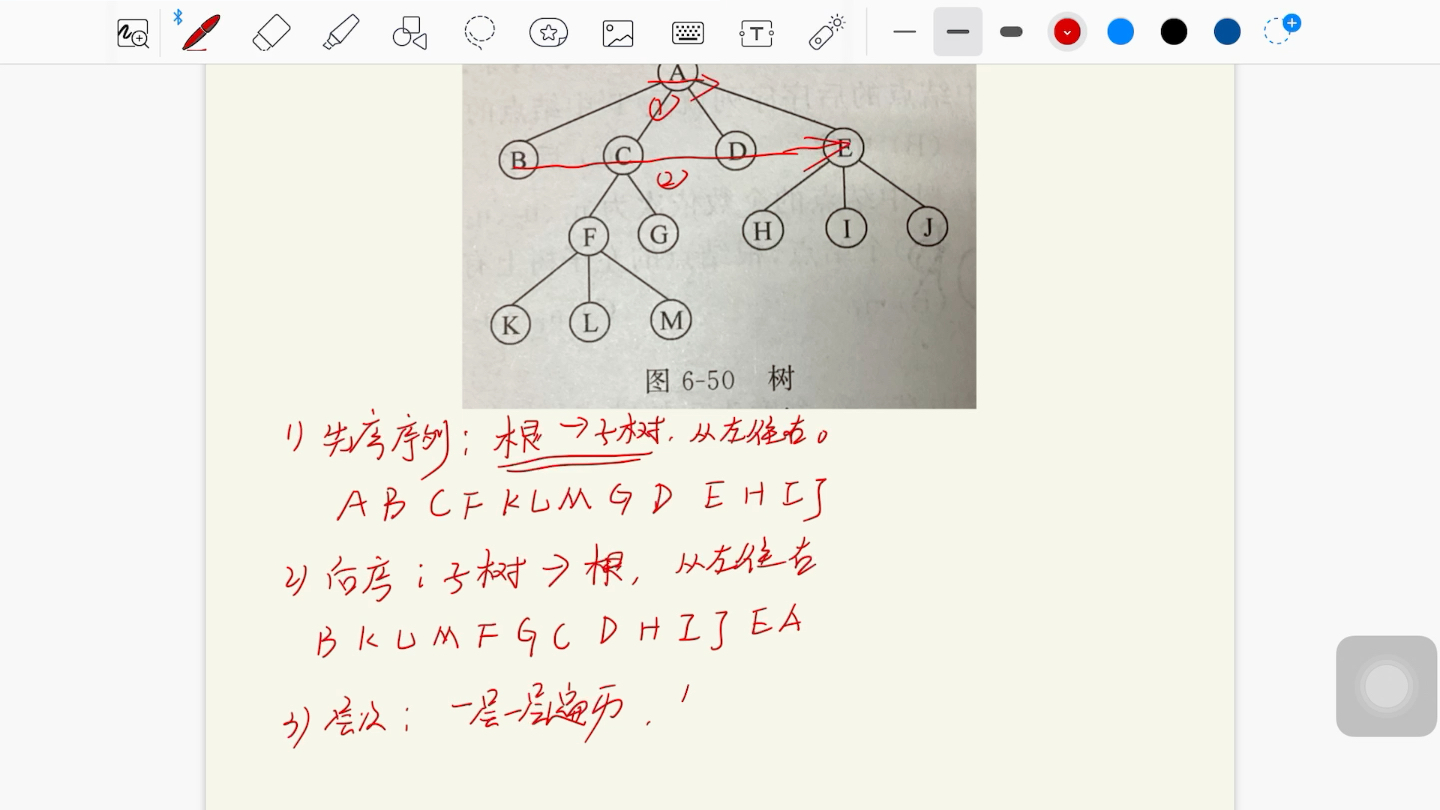 A
①
B C D E
②
F G H I J
K L M
图 6-50 树
1) 先序序列: 根→子树, 从左往右。
A B C F K L M G D E H I J
2) 后序: 子树→根, 从左往右
B K L M F G C D H I J E A
3) 层次: 一层一层遍历,